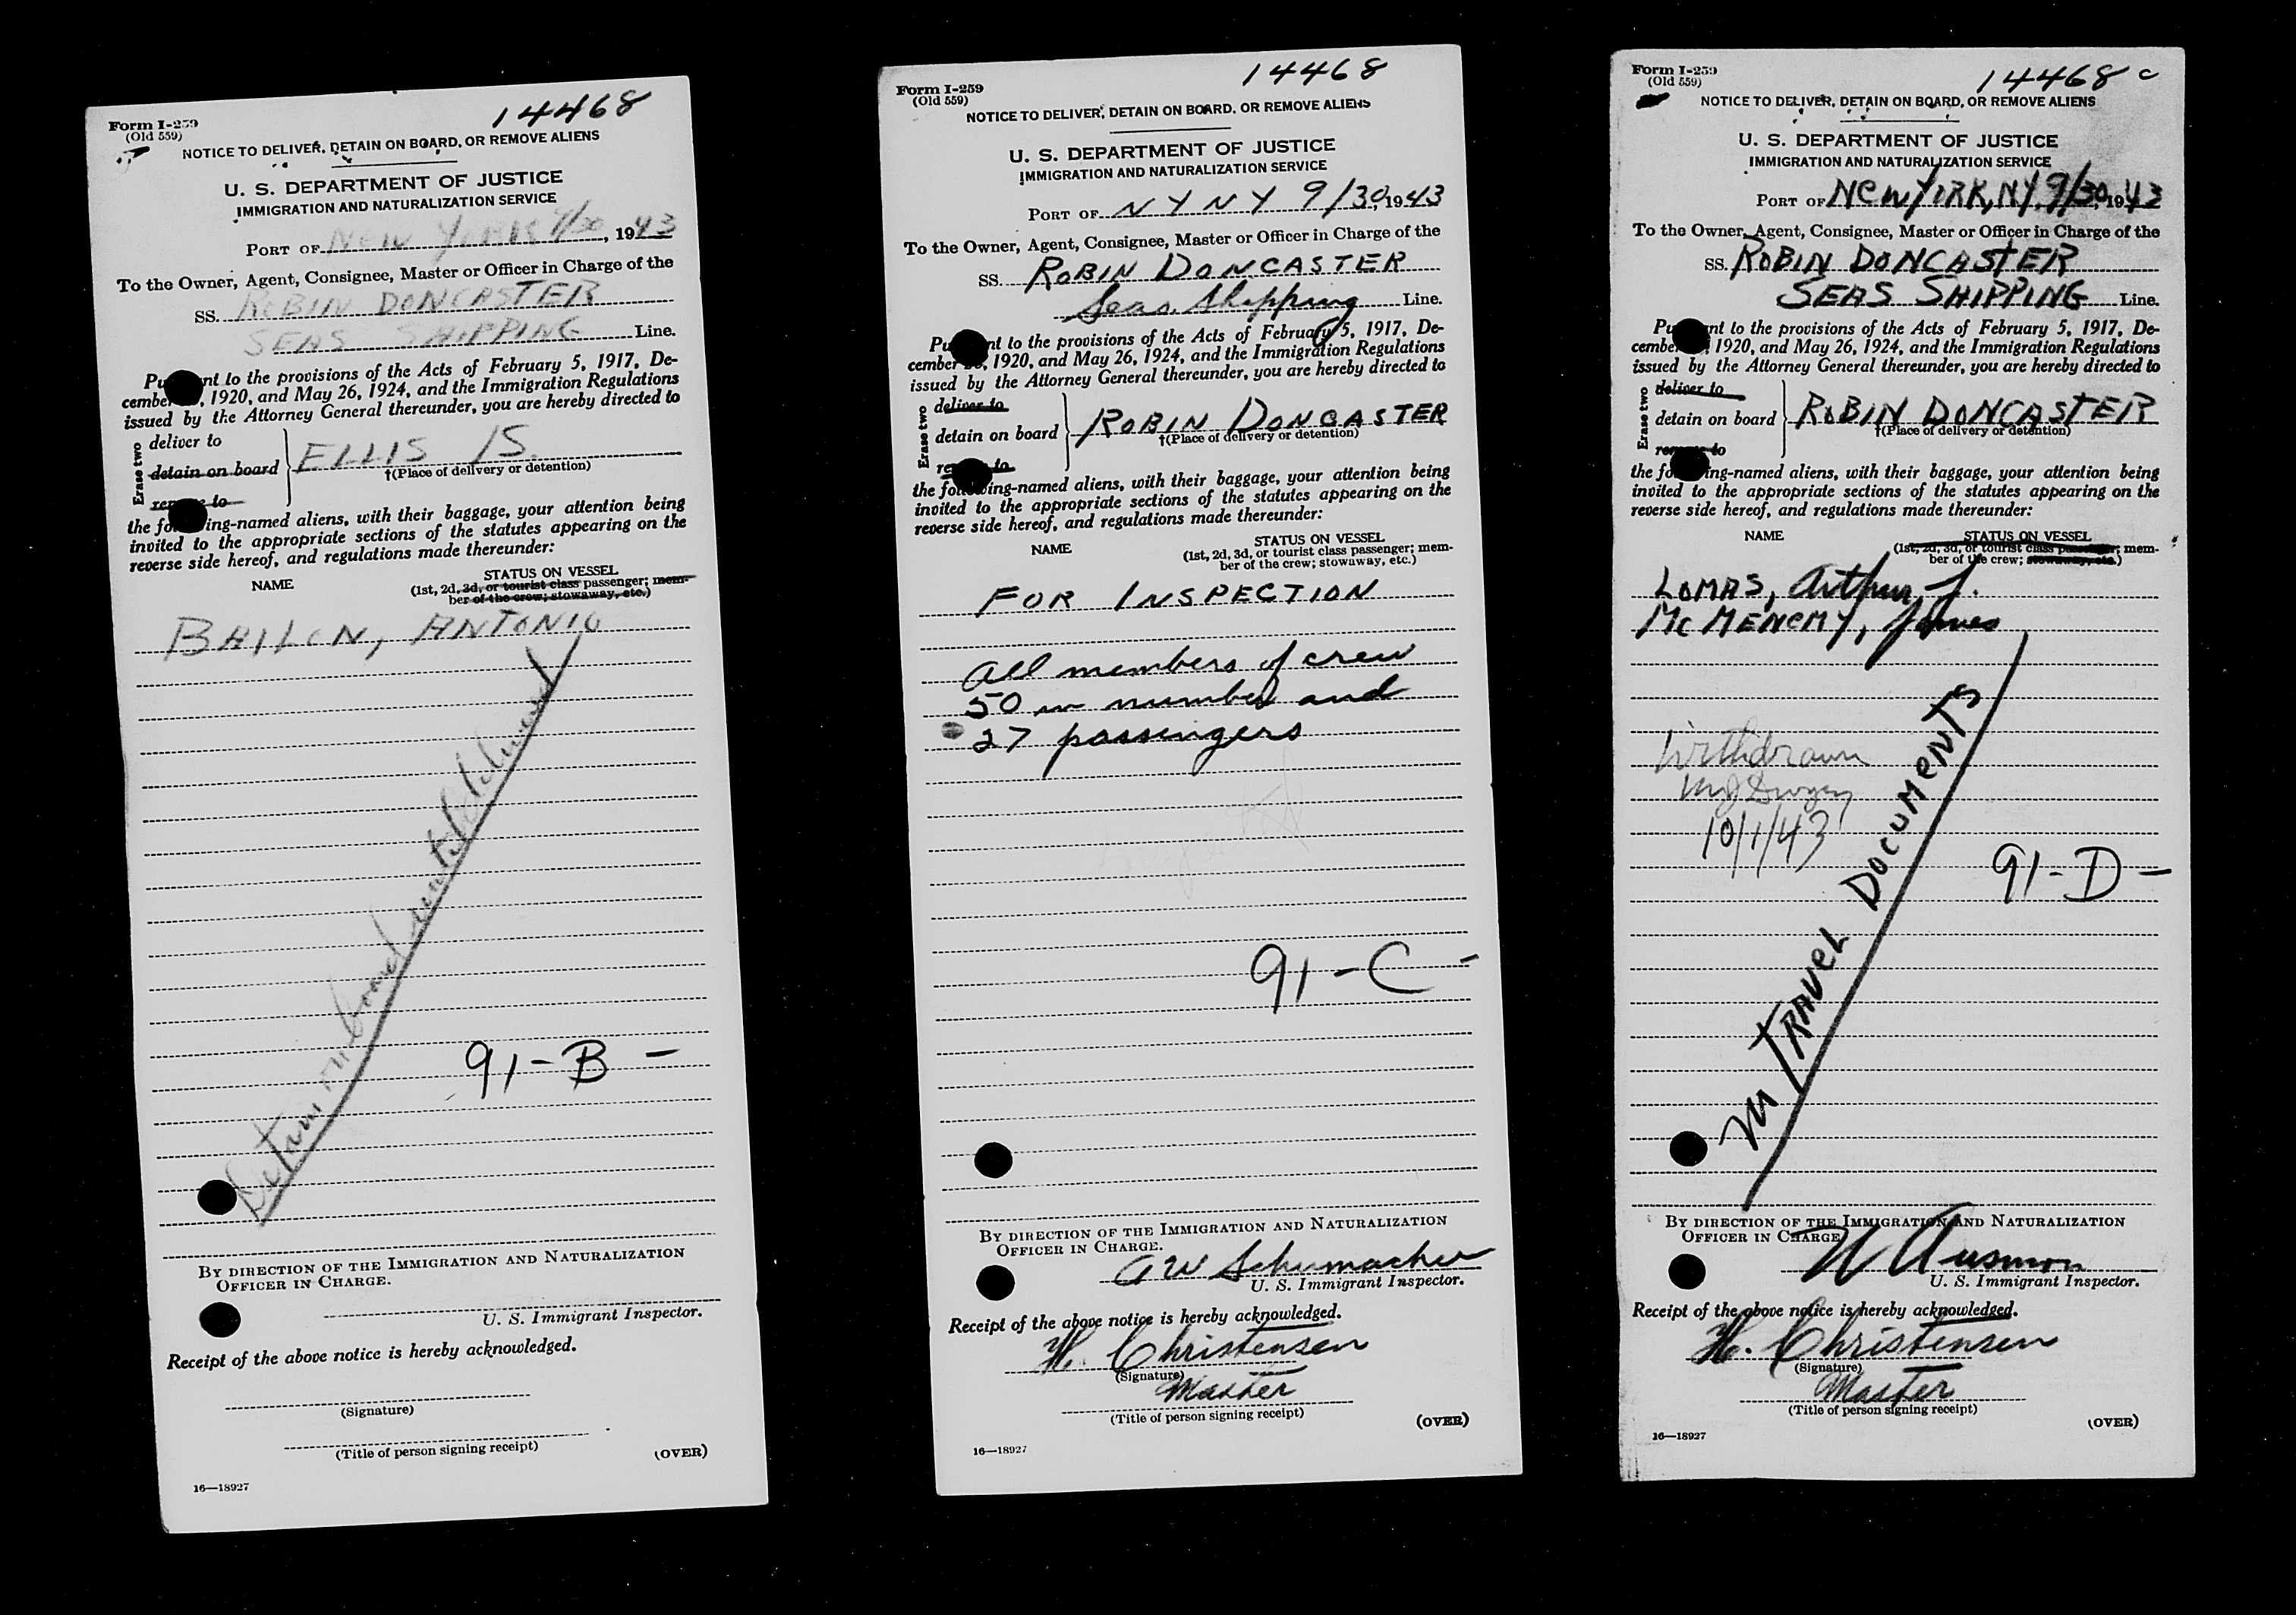 14468
Form I-259
(Old 559)
NOTICE TO DELIVER, DETAIN ON BOARD, OR REMOVE ALIENS
U. S. DEPARTMENT OF JUSTICE
IMMIGRATION AND NATURALIZATION SERVICE
PORT OF NEW YORK 9/30, 1943
To the Owner, Agent, Consignee, Master or Officer in Charge of the
SS. ROBIN DONCASTER
SEAS SHIPPING Line.
nt to the provisions of the Acts of February 5, 1917, De-
cember , 1920, and May 26, 1924, and the Immigration Regulations
issued by the Attorney General thereunder, you are hereby directed to
Erase two
deliver to
detain on board
to
ELLIS IS.
†(Place of delivery or detention)
the fo ing-named aliens, with their baggage, your attention being
invited to the appropriate sections of the statutes appearing on the
reverse side hereof, and regulations made thereunder:
NAME
STATUS ON VESSEL
(1st, 2d, 3d, or tourist class passenger; mem-
ber of the crew; stowaway, etc.)
BAILON, ANTONIO
Detain on board until
91-B-
BY DIRECTION OF THE IMMIGRATION AND NATURALIZATION
OFFICER IN CHARGE.
U. S. Immigrant Inspector.
Receipt of the above notice is hereby acknowledged.
(Signature)
(Title of person signing receipt)
(OVER)
16—18927
14468
Form I-259
(Old 559)
NOTICE TO DELIVER, DETAIN ON BOARD, OR REMOVE ALIENS
U. S. DEPARTMENT OF JUSTICE
IMMIGRATION AND NATURALIZATION SERVICE
PORT OF N Y N Y 9/30, 1943
To the Owner, Agent, Consignee, Master or Officer in Charge of the
SS. ROBIN DONCASTER
Seas Shipping Line.
Pu nt to the provisions of the Acts of February 5, 1917, De-
cember , 1920, and May 26, 1924, and the Immigration Regulations
issued by the Attorney General thereunder, you are hereby directed to
Erase two
deliver to
detain on board
to
ROBIN DONCASTER
†(Place of delivery or detention)
the following-named aliens, with their baggage, your attention being
invited to the appropriate sections of the statutes appearing on the
reverse side hereof, and regulations made thereunder:
NAME
STATUS ON VESSEL
(1st, 2d, 3d, or tourist class passenger; mem-
ber of the crew; stowaway, etc.)
FOR INSPECTION
All members of crew
50 in number and
27 passengers
91-C-
BY DIRECTION OF THE IMMIGRATION AND NATURALIZATION
OFFICER IN CHARGE.
A W Schumacher
U. S. Immigrant Inspector.
Receipt of the above notice is hereby acknowledged.
H. Christensen
(Signature)
Master
(Title of person signing receipt)
(OVER)
16—18927
14468 c
Form I-259
(Old 559)
NOTICE TO DELIVER, DETAIN ON BOARD, OR REMOVE ALIENS
U. S. DEPARTMENT OF JUSTICE
IMMIGRATION AND NATURALIZATION SERVICE
PORT OF NEW YORK, NY. 9/30, 1943
To the Owner, Agent, Consignee, Master or Officer in Charge of the
SS. ROBIN DONCASTER
SEAS SHIPPING Line.
Pu nt to the provisions of the Acts of February 5, 1917, De-
cember , 1920, and May 26, 1924, and the Immigration Regulations
issued by the Attorney General thereunder, you are hereby directed to
Erase two
deliver to
detain on board
to
ROBIN DONCASTER
†(Place of delivery or detention)
the fo ing-named aliens, with their baggage, your attention being
invited to the appropriate sections of the statutes appearing on the
reverse side hereof, and regulations made thereunder:
NAME
STATUS ON VESSEL
(1st, 2d, 3d, or tourist class passenger; mem-
ber of the crew; stowaway, etc.)
LOMAS, Arthur, J.
McMENEMY, James
Withdrawn
10/1/43
TRAVEL DOCUMENTS
91-D-
BY DIRECTION OF THE IMMIGRATION AND NATURALIZATION
OFFICER IN CHARGE
U. S. Immigrant Inspector.
Receipt of the above notice is hereby acknowledged.
H. Christensen
(Signature)
Master
(Title of person signing receipt)
(OVER)
16—18927